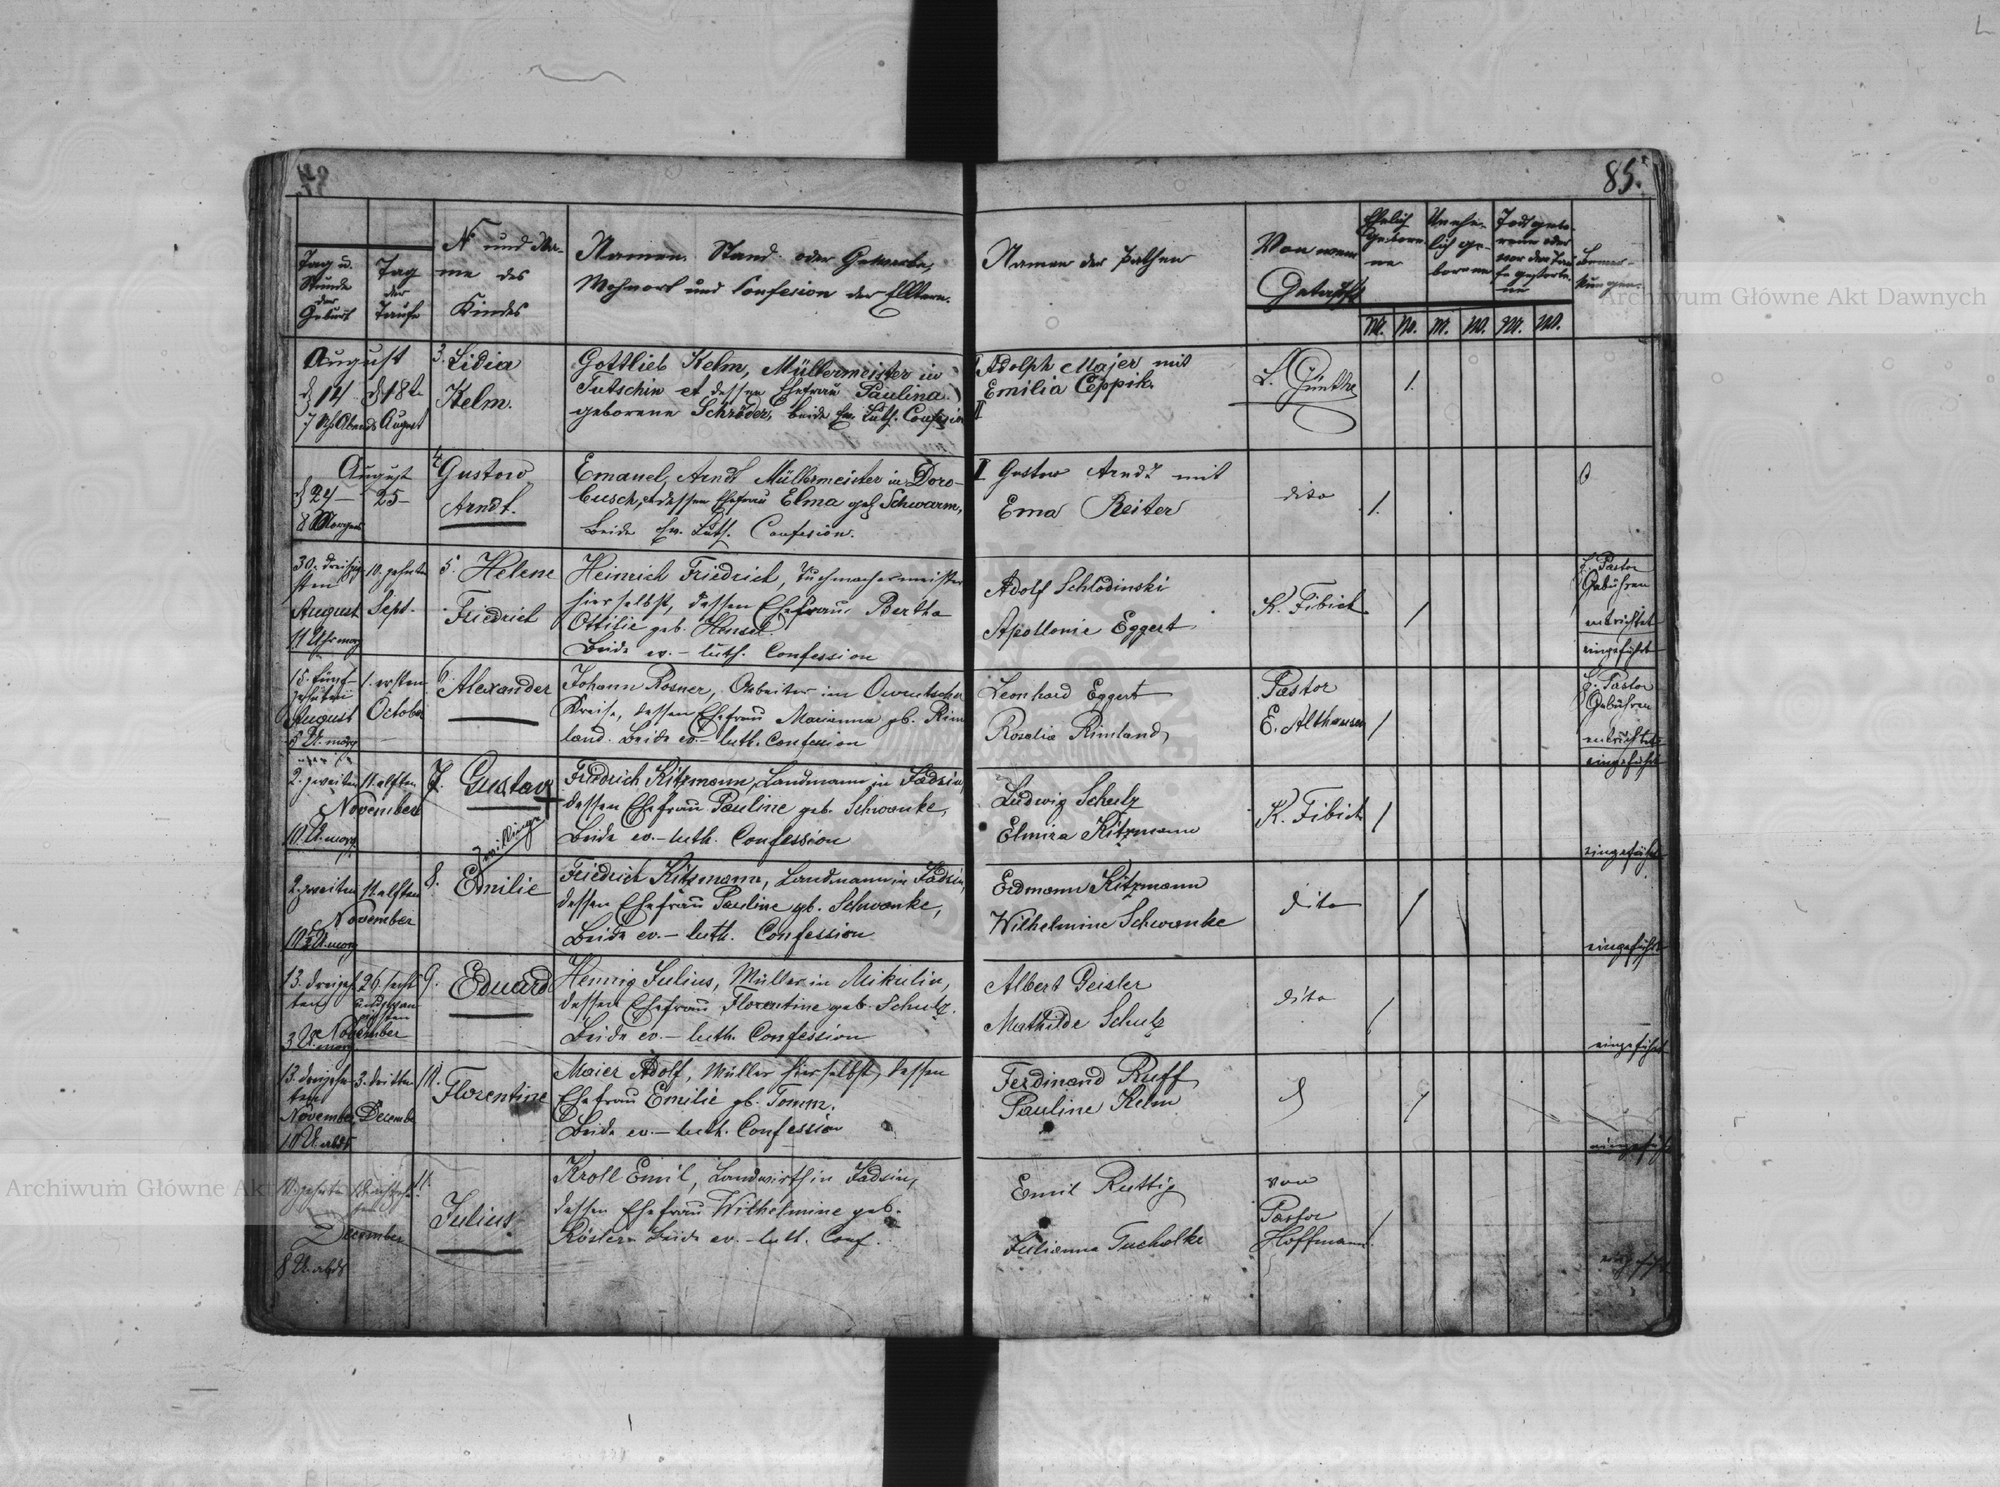 85.
Tag u.
Stunde
der
Geburt
Tag
der
Taufe
N und Na-
me des
Kindes
Namen, Stand oder Gewerbe,
Wohnort und Confesion der Eltern.
Namen der Pathen
Von wem
Getauft
Ehelich
Geborene
Unehe-
lich ge-
borene
Todtgebo-
rene oder
vor der Tau-
fe gestorbe-
ne
Bemer-
kungen.
M. W. M. W. M. W.
August
d 14 d 18t
7 Abends August
3. Lidia
Kelm.
Gottlieb Kelm, Müllermeister in
Tutschin et dessen Ehefrau Paulina
geborene Schröder, beide Ev. Luth. Confesion
Adolph Majer mit
Emilia Ceppik
L. Günther
1.
August
d 24 25
8 Morgens
4 Gustow
Arndt.
Emanel Arndt Müllermeister in Doro-
busch, et dessen Ehefrau Elma geb Schwarm,
beide Ev. Luth. Confesion.
II Gustow Arndt mit
Ema Reiter
dito
1.
30. dreißig-
sten
August
11 Uhr morg
10. zehnten
Sept.
5. Helene
Friedrich
Heinrich Friedrich, Tuchmachermeister
hierselbst, dessen Ehefrau Bertha
Ottilie geb. Hensel.
Beide ev.-luth. Confession
Adolf Schlodinski
Apollonie Eggert
K. Fibich
/
Pastor
Gebühren
entrichtet
eingeführt
15. fünf-
zehnten
August
5 U. morg
1. ersten
October
6. Alexander
Johann Rosner, Arbeiter im Owrutscher
Kreise, dessen Ehefrau Marianna gb. Rim
land. Beide ev.-luth. Confession
Leonhard Eggert
Rosalia Rimland,
Pastor
E. Althausen
/
Pastor
Gebühren
entrichtet
eingeführt
2. zweiten 11. elften
November
10 U. morg
7. Gustav
Zwillinge
Friedrich Kitzmann, Landmann in Jadzin,
dessen Ehefrau Pauline geb. Schwanke,
Beide ev.-luth. Confession
Ludwig Schulz
Elmira Kitzmann
K. Fibich
/
eingeführt
2. zweiten 11. elften
November
10½ U. morg
8. Emilie
Friedrich Kitzmann, Landmann in Jadzin,
dessen Ehefrau Pauline gb. Schwanke,
Beide ev.-luth. Confession
Erdmann Kitzmann
Wilhelmine Schwanke
dito
/
eingeführt
13. dreizehn
ten
26. sechs
undzwan
zigsten
November
3 U. morg
9. Eduard
Hennig Julius, Müller in Mikulin,
dessen Ehefrau Florentine geb. Schulz.
Beide ev.-luth. Confession
Albert Geisler
Mathilde Schulz
dito
/
eingeführt
13. dreizehn
ten
November
10 U. abds
3. dritten
December
10. Florentine
Maier Adolf, Müller hierselbst, dessen
Ehefrau Emilie gb. Tomm.
Beide ev.-luth. Confession
Ferdinand Ruff
Pauline Kelm
/
eingeführt
10. zehnten
December
8 U. abds
11.
Julius
Kroll Emil, Landwirth in Jadzin,
dessen Ehefrau Wilhelmine geb.
Köster Beide ev.-luth. Conf.
Emil Ruttig
Julianna Tucholke
von
Pastor
Hoffmann.
/
eingeführt
Archiwum Główne Akt Dawnych
Archiwum Główne Akt